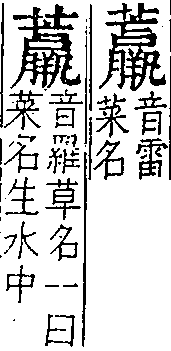 音雷
菜名
音羅草名一曰
菜名生水中